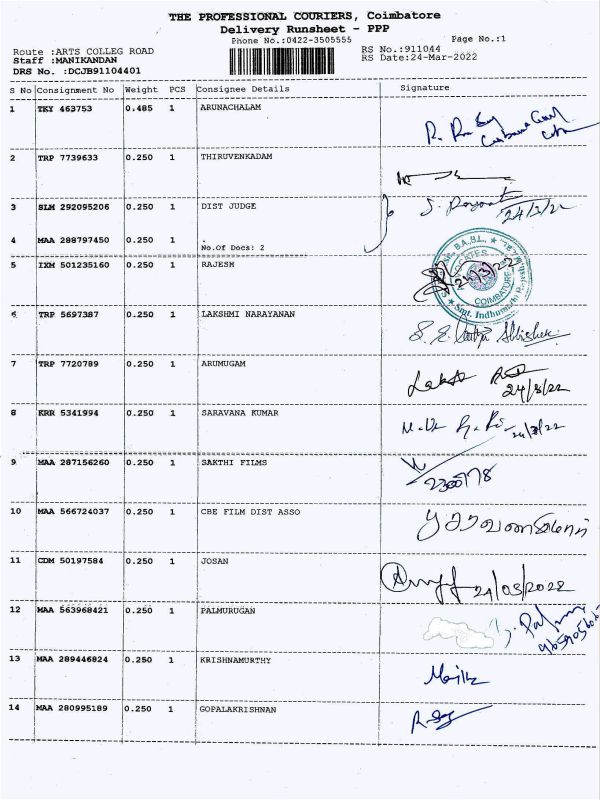 THE PROFESSIONAL COURIERS, Coimbatore
Delivery Runsheet - PPP
Phone No.:0422-3505555
Page No.:1
Route :ARTS COLLEG ROAD
RS No.:911044
Staff :MANIKANDAN
RS Date:24-Mar-2022
DRS No. :DCJB91104401
S No Consignment No Weight PCS Consignee Details Signature
1 TKY 463753 0.485 1 ARUNACHALAM
2 TRP 7739633 0.250 1 THIRUVENKADAM
3 SLM 292095206 0.250 1 DIST JUDGE
24/3/22
4 MAA 288797450 0.250 1
No.Of Docs: 2
5 IXM 501235160 0.250 1 RAJESH
24/3/22
COIMBATORE
Smt. Indhumathi
6 TRP 5697387 0.250 1 LAKSHMI NARAYANAN
7 TRP 7720789 0.250 1 ARUMUGAM
24/3/22
8 KRR 5341994 0.250 1 SARAVANA KUMAR
24/3/22
9 MAA 287156260 0.250 1 SAKTHI FILMS
2300778
10 MAA 566724037 0.250 1 CBE FILM DIST ASSO
11 CDM 50197584 0.250 1 JOSAN
24/03/2022
12 MAA 563968421 0.250 1 PALMURUGAN
13 MAA 289446824 0.250 1 KRISHNAMURTHY
14 MAA 280995189 0.250 1 GOPALAKRISHNAN